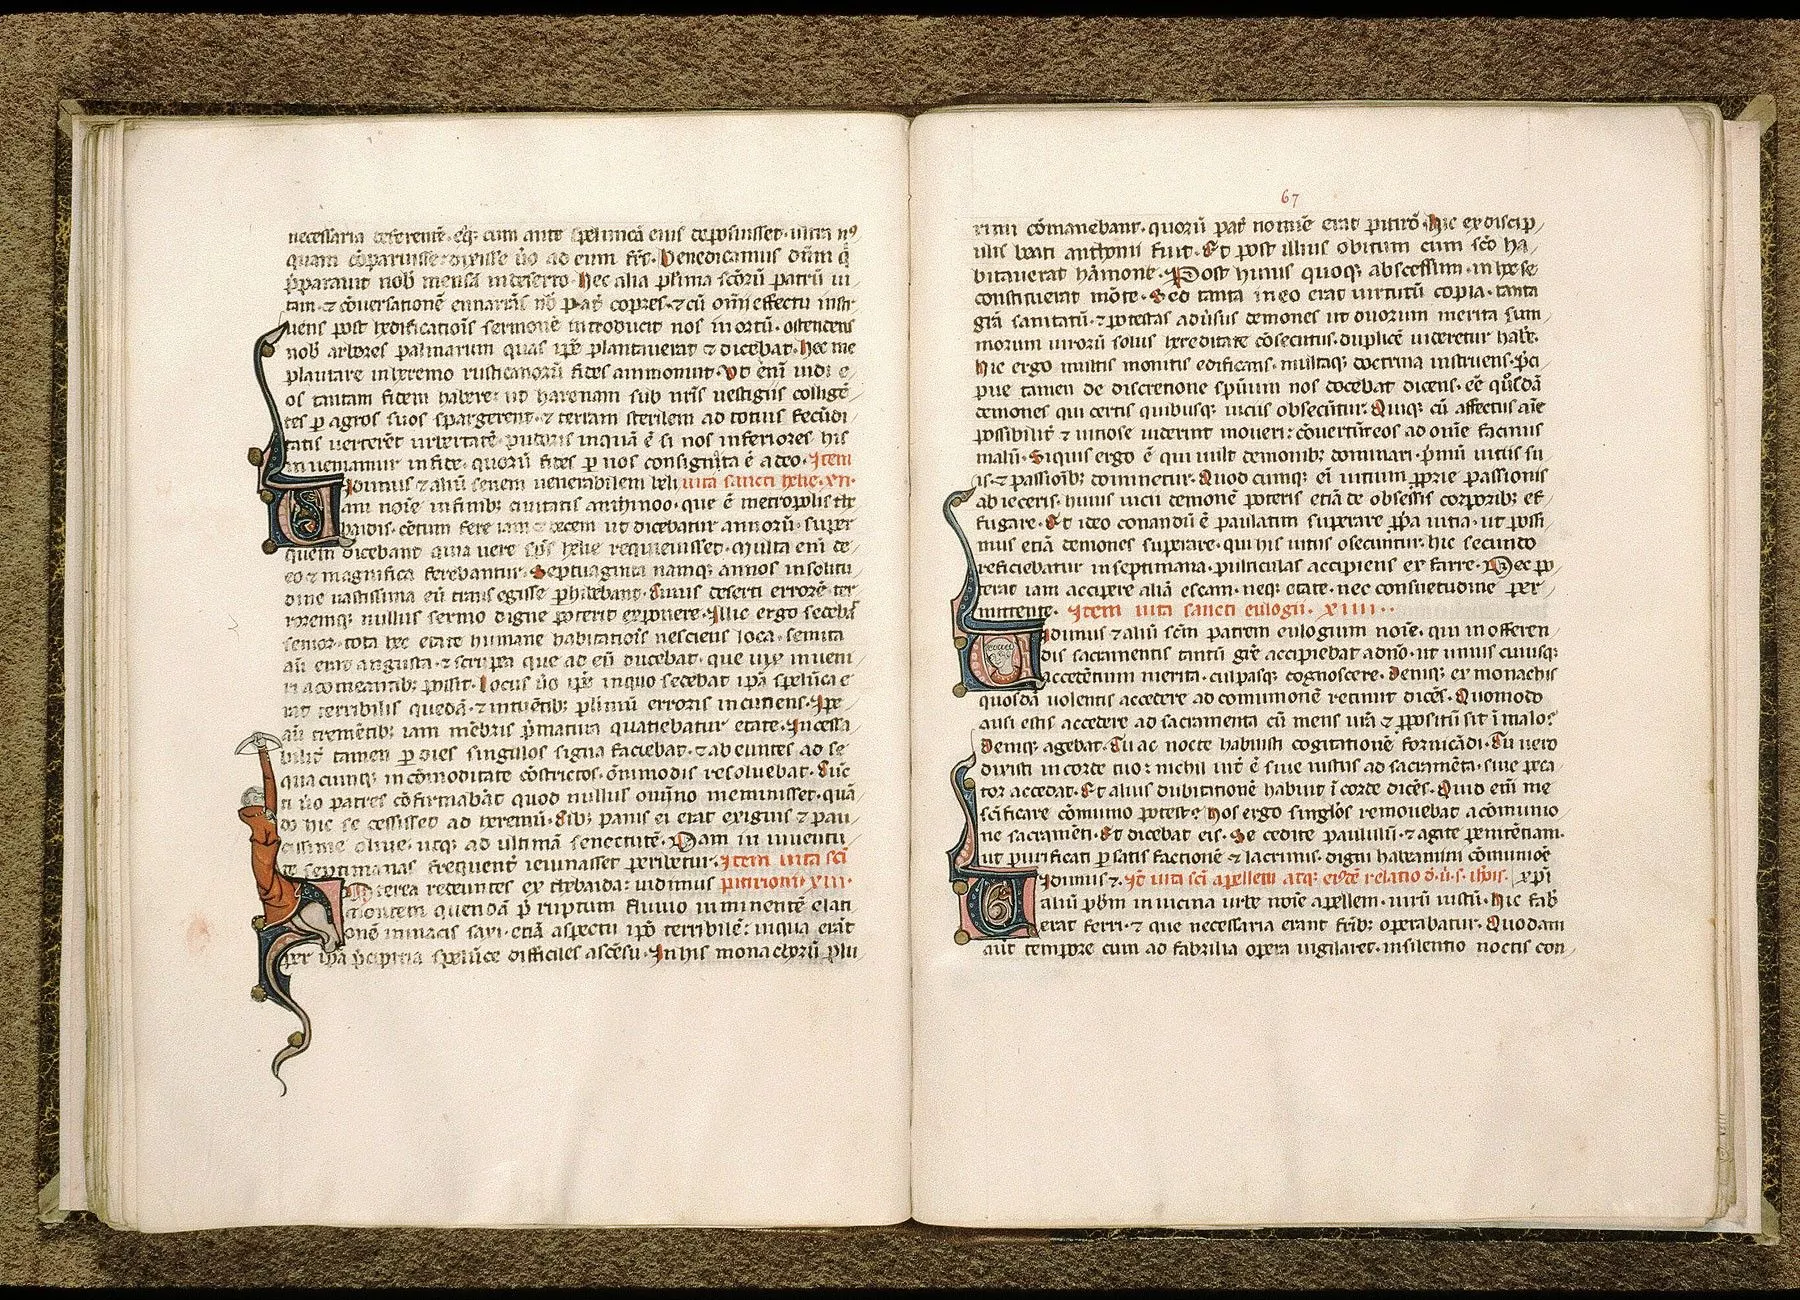 necessaria deferente. eq̃ cum ante speluncã eius deposuisset. uirtu nꝰ
quam cõparuisse. dixisse ũo ad eum frẽs. Benedicamus dñm q̃
p̃parauit nob mensã in deserto. Hec alia plurima scõrũ patrũ ui
tam. ⁊ cõuersationẽ enarrãs nõ pat̃ copres. ⁊ cũ omi effectu instr
uens post hedificatiõis sermonẽ introducit nos in ortũ. ostendens
nob arbores palmarum quas ip̃e plantauerat ⁊ dicebat. Hec me
plantare in heremo rusticanorũ fides ammonuit. Vt enĩ uidi e
os tantam fidem habere: ut harenam sub nr̃is uestigiis colligẽ
tes p agros suos spargerent. ⁊ terram sterilem ad totius fecũdi
tatis uerterẽt ubertatẽ. pudoris inquã ẽ si nos inferiores his
inueniamur in fide. quorũ fides p nos consignata ẽ a deo. Item
Uidimus ⁊ aliũ senem uenerabilem heli uita sancti helie. xii.
am noĩe in finib; ciuitatis anthinoo. que ẽ metropolis the
baidis. cẽtum fere iam ⁊ decem ut dicebatur annorũ. super
quem dicebant quia uere sp̃s helie requieuisset. Multa eni de
eo ⁊ magnifica ferebantur. Septuaginta namq; annos in solitu
dine uastissima eũ trans egisse p̃hibebant. Cuius deserti errorẽ ter
roremq; nullus sermo digne poterit exponere. Illic ergo sedebã
senior. tota hec etate humane habitatiois nesciens loca. Semita
aũ erat angusta. ⁊ scrupea que ad eũ ducebat. que uix inueni
ri a comeantib; possit. Locus ũo ip̃e in quo sedebat ip̃a spelũca e
rat terribilis quedã. ⁊ intuẽtib; plimũ erroris incutiens. Ip̃e
aũ trementib; iam mẽbris p̃matura quatiebatur etate. Incessa
bilit̃ tamen p dies singulos signa faciebat. ⁊ ab euntes ad se
quacumq; incõmoditate cõstrictos. õnimodis resoluebat. Dic̃
ti ũo patres cõfirmabãt quod nullus omino meminisset. quã
do hic se cessisset ad heremũ. Cib; panis ei erat exiguus ⁊ pau
cissime oliue. utq; ad ultimã senectutẽ. Nam in iuuentu
te septimanas frequent̃ ieiunasse peribetur. Item uita sc̃i
Interea redeuntes ex thebaida: uidimus pitirioni. xiii.
montem quendã p̃ ruptum fluuio inminentẽ elati
onẽ minacis saxi. etiã aspectu ip̃o terribilẽ: in qua erãt
per ip̃a p̃cipitia spelũce difficiles ascẽsu. In his monachorũ plu
67
rimi cõmanebant. quorũ pat̃ nomie erat pitirõ. Hic ex discip
ulis beati anthonii fuit. Et post illius obitum cum sc̃o ha
bitauerat hãmone. Post huius quoq; abscessum. in hoc se
constituerat mõte. Sed tanta in eo erat uirtutũ copia. tanta
gr̃a sanitatũ. ⁊ potestas aduersus demones ut duorum merita sum
morum uirorũ solus hereditate cõsecutus. duplicẽ uideretur habẽ.
Hic ergo multis monitis edificans. multaq; doctrina instruens. p̃ci
pue tamen de discretione sp̃uum nos docebat dicens. eẽ q̃sdã
demones qui certis quibusq; uiciis obsecũtur. Quiq; cũ affectus aĩe
possibilit̃ ⁊ uitiose uiderint moueri: cõuertũt eos ad om̃e facinus
malũ. Siquis ergo ẽ qui uult demonib; dominari. p̃mũ uitiis su
is. ⁊ passioñib; dominetur. Quod cumq; eĩ uitium pprie passionis
abieceris. huius uicii demonẽ poteris etiã de obsessis corporib; ef
fugare. Et ideo conandũ ẽ paulatim superare pp̃a uitia. ut possi
mus etiã demones superare. qui his uitiis osecuntur. hic secundo
reficiebatur in septimana. pulticulas accipiens ex farre. Nec po
terat iam accipere aliã escam. neq; etate. nec consuetudine per
mittente. Item uita sancti eulogii. xiiii..
Uidimus ⁊ aliũ sc̃m patrem eulogium noĩe. qui in offeren
dis sacramentis tantũ gr̃e accipiebat a dñõ. ut unius cuiusq;
accedentium merita. culpasq; cognoscere. Deniq; ex monachis
quosdã uolentis accedere ad comunionẽ retinuit dicẽs. Quomodo
ausi estis accedere ad sacramenta cũ mens ur̃a ⁊ ppositũ sit ĩ malo?
Deniq; agebat. Tu ac nocte habuisti cogitationẽ fornicãdi. Tu uero
dixisti in corde tuo: nichil int̃ ẽ siue iustus ad sacramẽta. siue pecca
tor accedat. Et alius dubitationẽ habuit ĩ corde dicẽs. Quid eni me
sc̃ificare cõmunio potest? Hos ergo singlos remouebat a cõmunio
ne sacramẽti. Et dicebat eis. Se cedite paululũ. ⁊ agite penitẽtiam.
ut purificati p satis factionẽ ⁊ lacrimis. digni habeamini cõmunioẽ
Uidimus ⁊. It̃ uita sc̃i apellem atq; eiꝰdẽ relatio d. u. s. ihõis. xpi
aliũ pb̃m in uicina urbe noĩe apellem. uirũ iustũ. Hic fab̃
erat ferri. ⁊ que necessaria erant frib; operabatur. Quodam
aut tempore cum ad fabrilia opera uigilaret. in silentio noctis con